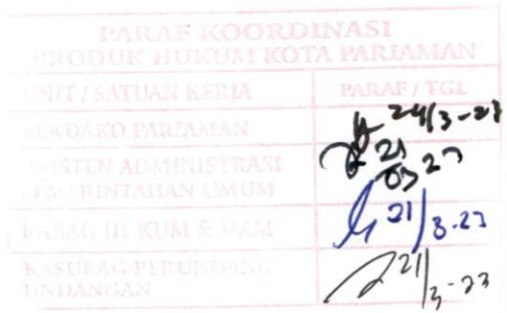 PARAF KOORDINASI
PRODUK HUKUM KOTA PARIAMAN
UNIT / SATUAN KERJA PARAF / TGL
SEKDAKO PARIAMAN 24/3-23
ASISTEN ADMINISTRASI 21
PEMERINTAHAN UMUM 03 23
KABAG HUKUM & HAM 21/3-23
KASUBAG PERUNDANG 21/3-23
UNDANGAN